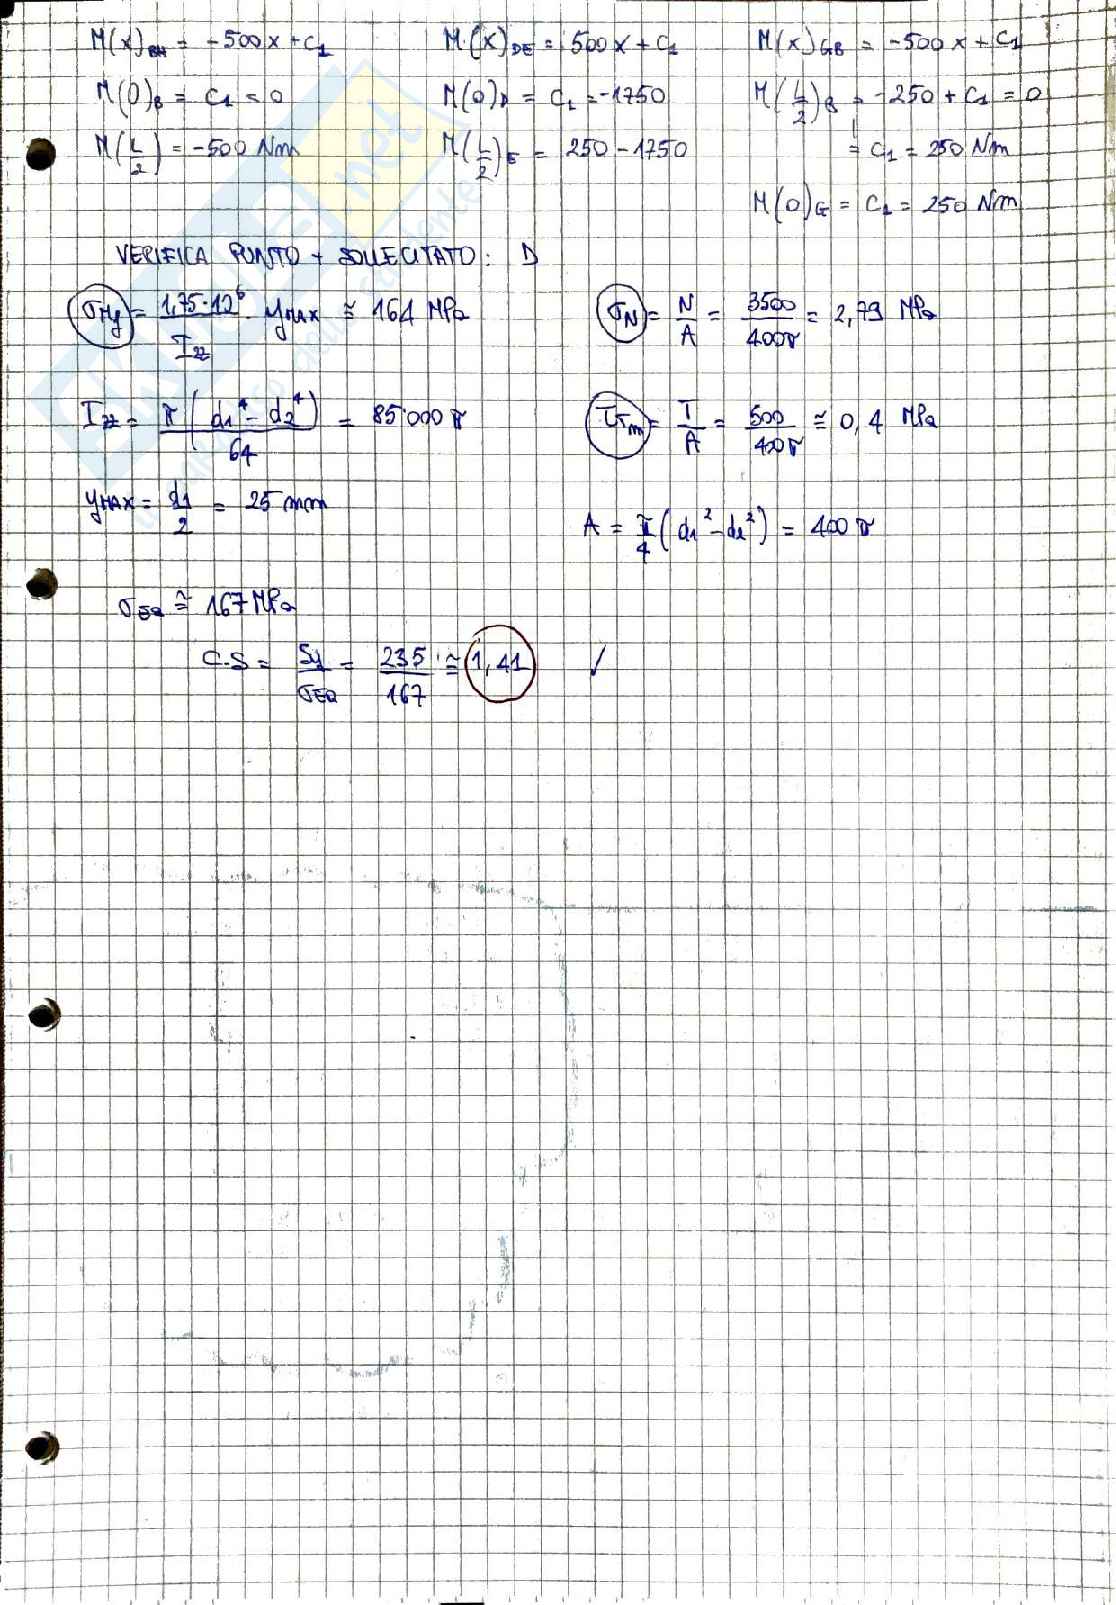 M(x)BH = -500x + C1
M(0)B = C1 = 0
M(L/2) = -500 Nm
M(x)DE = 500x + C1
M(0)D = C1 = -1750
M(L/2)E = 250 - 1750
M(x)GB = -500x + C1
M(L/2)B = -250 + C1 = 0
= C1 = 250 Nm
M(0)G = C1 = 250 Nm
VERIFICA PUNTO + SOLLECITATO: D
σMf = 1,75·10^6 / Izz · yMAX ≅ 164 MPa
Izz = π(d1^4 - d2^4) / 64 = 85'000 π
yMAX = d1/2 = 25 mm
σN = N/A = 3500/400π = 2,79 MPa
τTm = T/A = 500/400π ≅ 0,4 MPa
A = π/4 (d1² - d2²) = 400 π
σEQ ≅ 167 MPa
C.S = Sy/σEQ = 235/167 ≅ 1,41 ✓